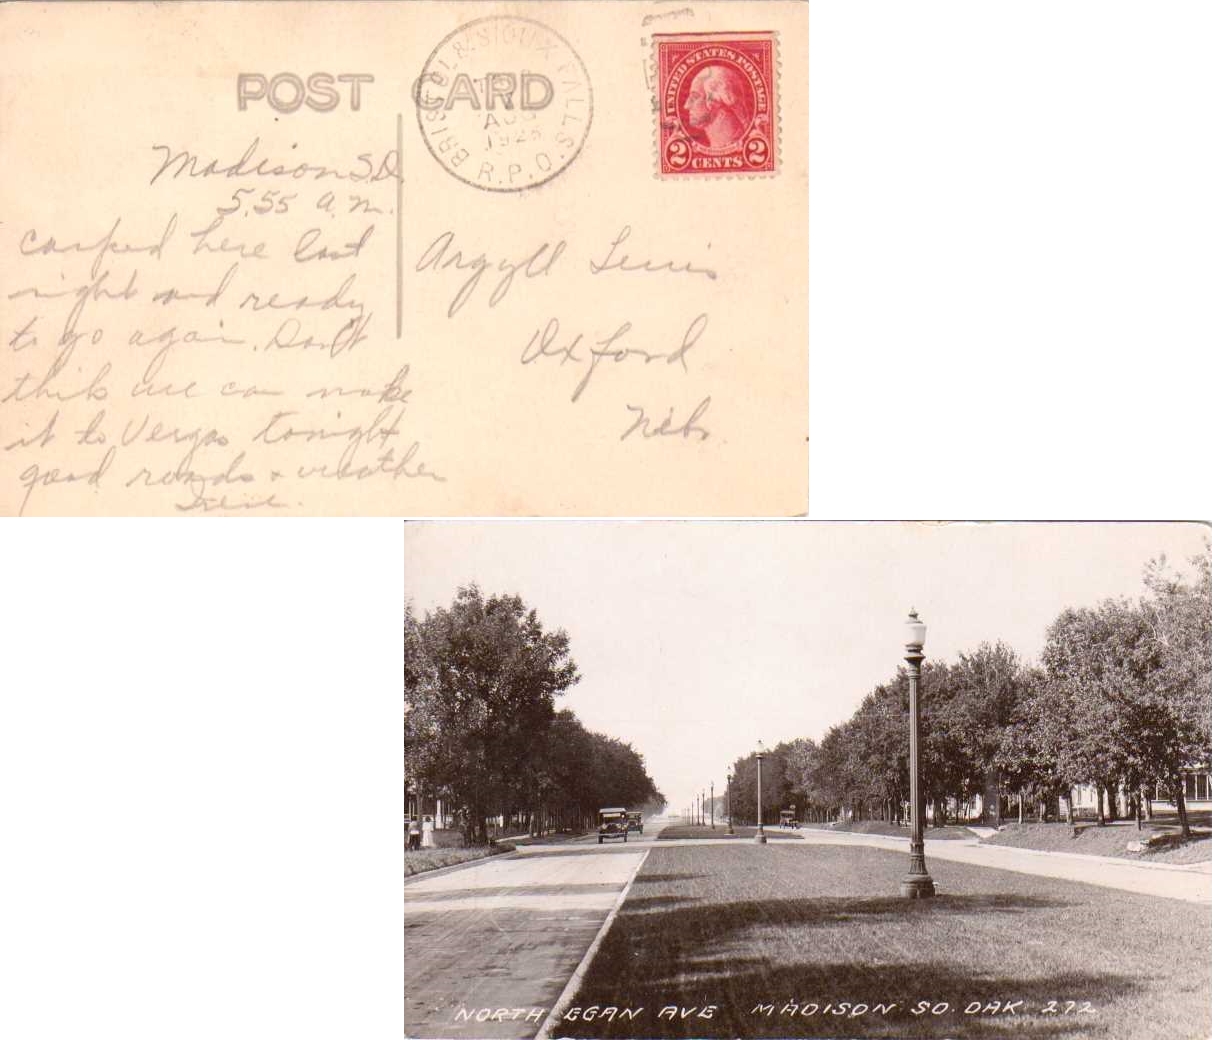 POST CARD
BRISTOL & SIOUX FALLS
AUG
192
R.P.O.
UNITED STATES POSTAGE
2 CENTS 2
Madison S.D.
5.55 a.m.
camped here last
night and ready
to go again. Don't
think we can make
it to Vergas tonight
good roads + weather
Irene.
Argyll Lewis
Oxford
Nebr
NORTH EGAN AVE MADISON SO. DAK 272